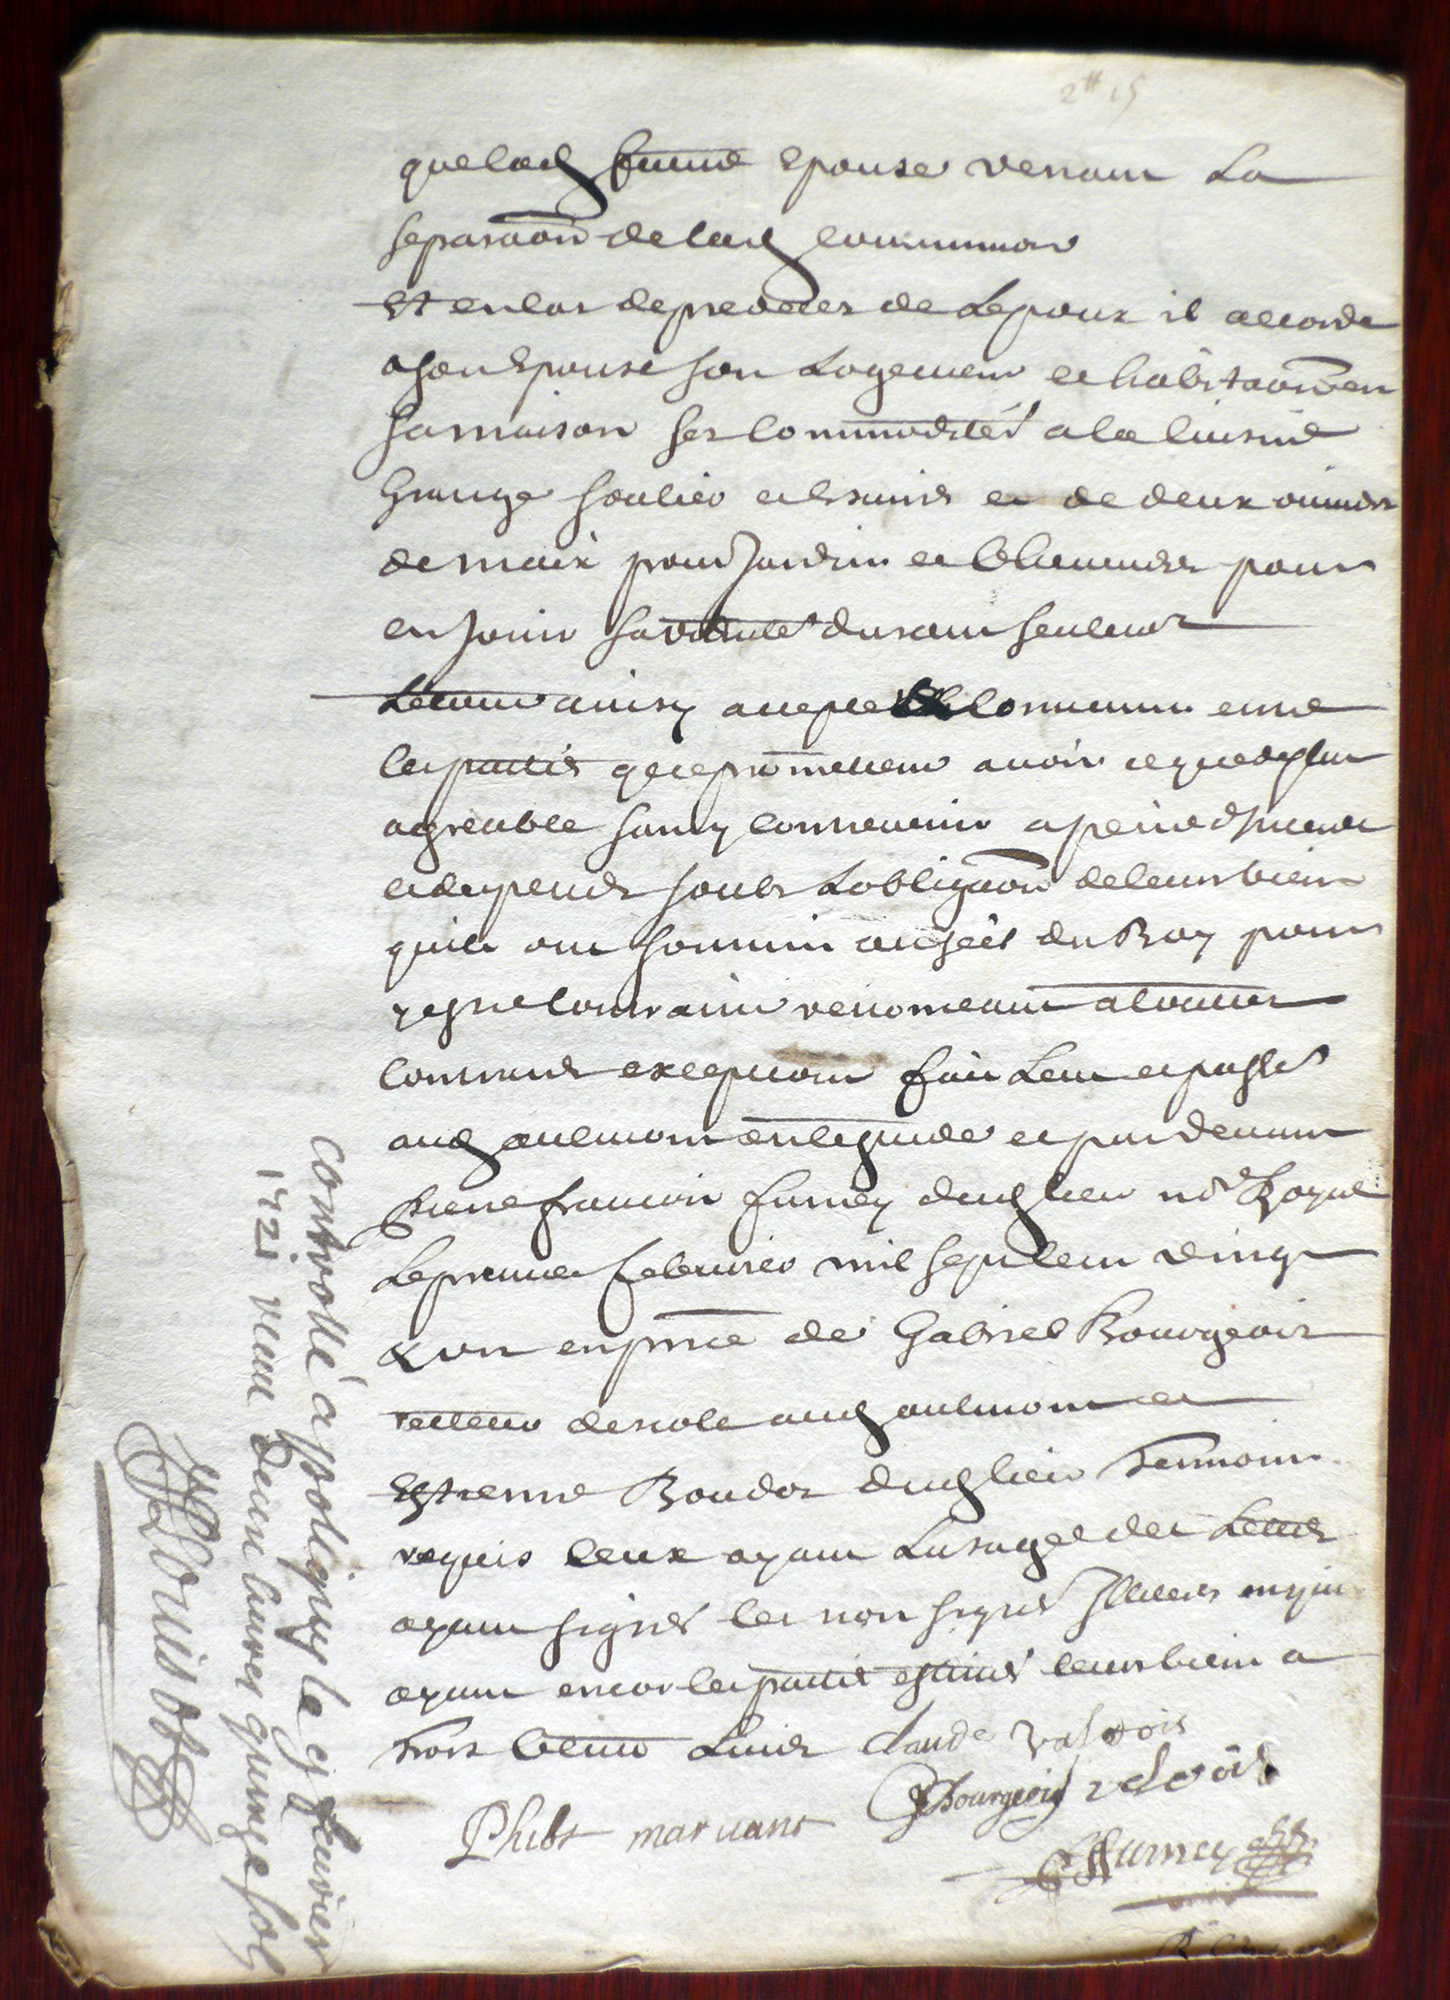 2# 15
que lad future Epouse venant La
separaôn de lad communion
Et en cas de predeces de Lepoux il accorde
a son Epouse son Logement et habitaôn en
sa maison ses commodités a la cuisine
Grange soulier et et de deux
de maix pour Jardin et pour
en Jouir sa viduité durant seulemt
ainsy accepté commun entre
les parties qui promettent avoir ce que dessus
agreable sans y contrevenir a peine d
et despends soubs Lobligaôn de leurs biens
quils ont soumis au scel du Roy pour
y estre contrains renonceant a touttes
contraires exceptions fait Leut et passé
aud aulmont en Lestude et par devant
Pierre francois fumey dud lieu nôre Royal
Le premier febvrier mil sept cent vingt
& un en pnce de Gabriel Bourgeois
recteur descole aud aulmont et
Estienne Boudot dud lieu temoins
requis ceux ayant Lusage des Lettres
ayant signés les non signés Illiteres
ayant encor les parties estimé leurs biens a
trois cent Livres claude valetois
GBourgeois
Phibt maruant
PFFumey
controllé a poligny le 9 fevrier
1721 receu deux livres quinze sols